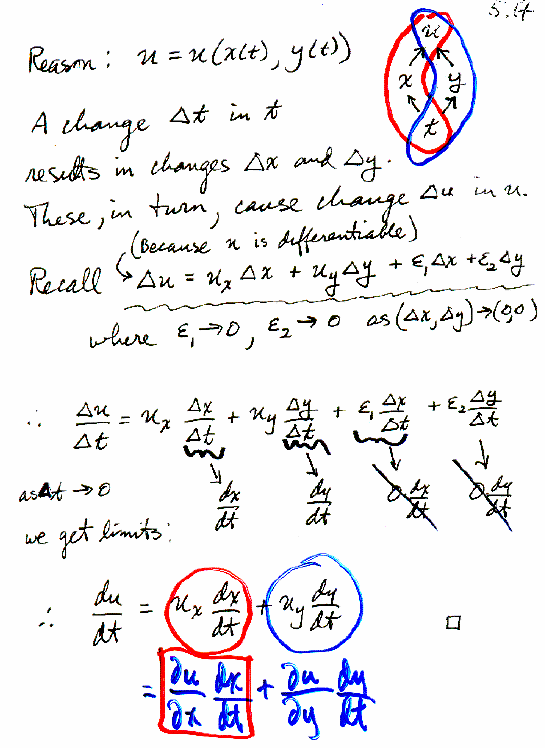 5.4
Reason: u = u(x(t), y(t))
u
x y
t
A change Δt in t
results in changes Δx and Δy.
These, in turn, cause change Δu in u.
(Because u is differentiable)
Recall Δu = u_x Δx + u_y Δy + ε₁Δx + ε₂Δy
where ε₁→0, ε₂→0 as (Δx, Δy)→(0,0)
∴ Δu/Δt = u_x Δx/Δt + u_y Δy/Δt + ε₁ Δx/Δt + ε₂ Δy/Δt
as Δt → 0 dx/dt dy/dt 0 dx/dt 0 dy/dt
we get limits:
∴ du/dt = u_x dx/dt + u_y dy/dt □
= ∂u/∂x dx/dt + ∂u/∂y dy/dt